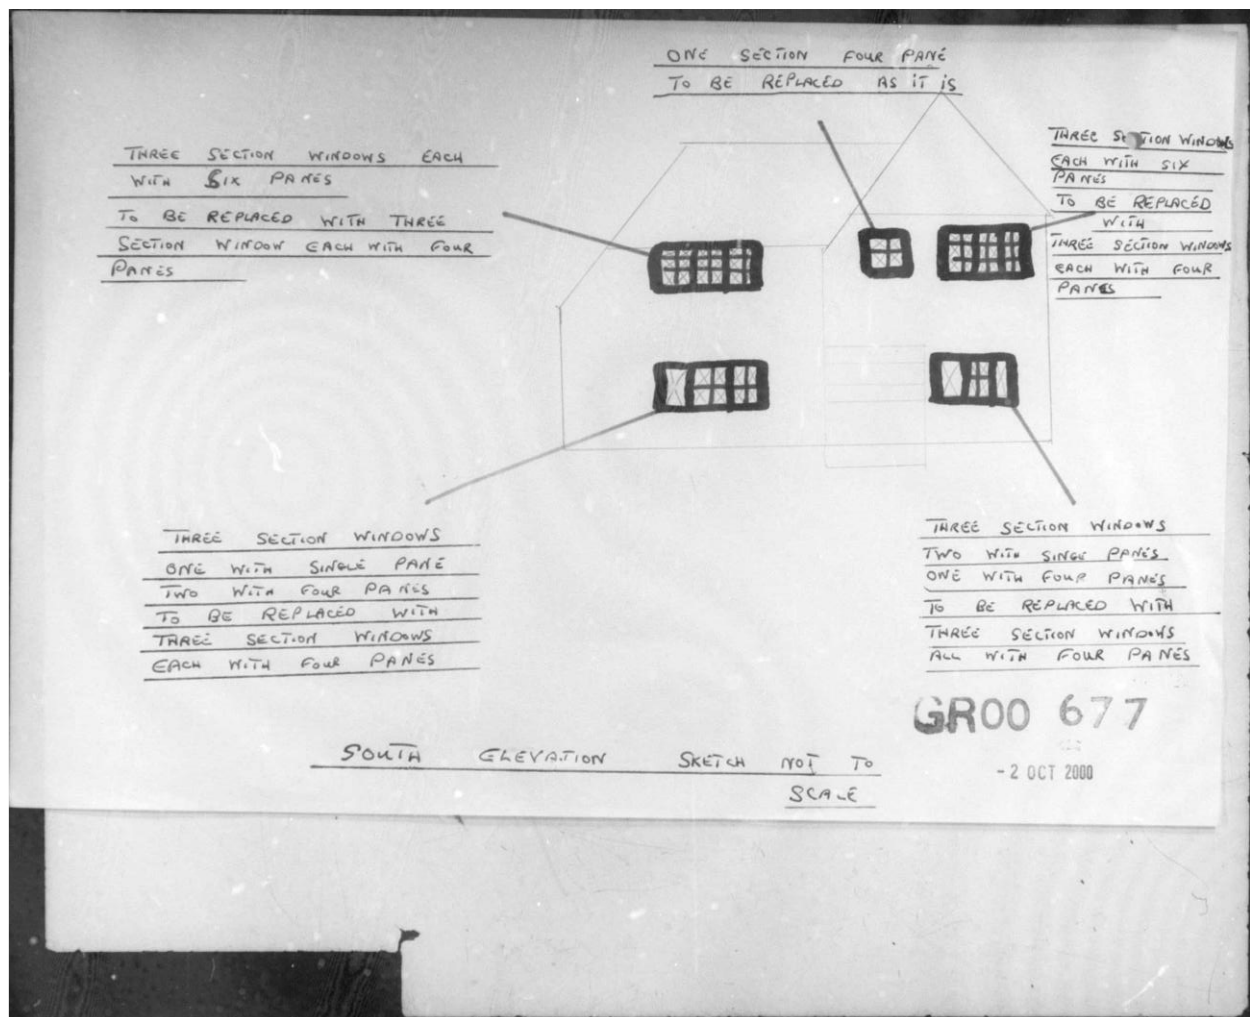 ONE SECTION FOUR PANE
TO BE REPLACED AS IT IS
THREE SECTION WINDOWS EACH
WITH SIX PANES
TO BE REPLACED WITH THREE
SECTION WINDOW EACH WITH FOUR
PANES
THREE SECTION WINDOWS
EACH WITH SIX
PANES
TO BE REPLACED
WITH
THREE SECTION WINDOWS
EACH WITH FOUR
PANES
THREE SECTION WINDOWS
ONE WITH SINGLE PANE
TWO WITH FOUR PANES
TO BE REPLACED WITH
THREE SECTION WINDOWS
EACH WITH FOUR PANES
THREE SECTION WINDOWS
TWO WITH SINGE PANES
ONE WITH FOUR PANES
TO BE REPLACED WITH
THREE SECTION WINDOWS
ALL WITH FOUR PANES
GR00 677
-2 OCT 2000
SOUTH ELEVATION SKETCH NOT TO
SCALE